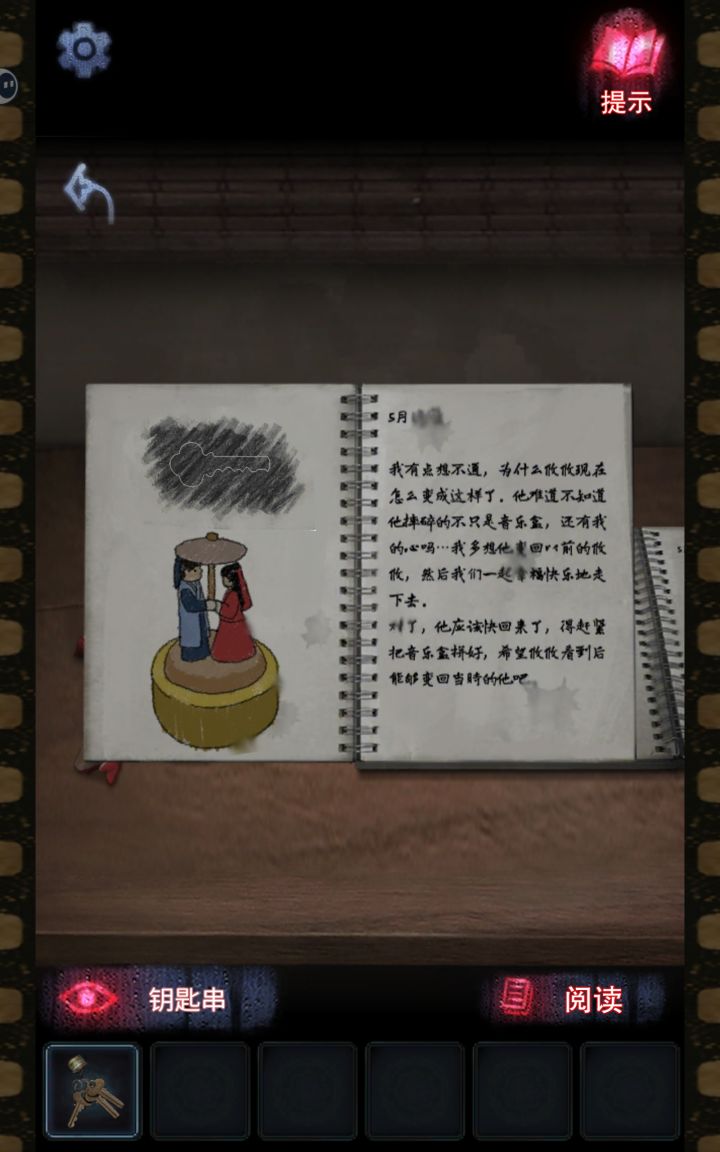 提示
5月
我有点想不通，为什么攸攸现在
怎么变成这样了。他难道不知道
他摔碎的不只是音乐盒，还有我
的心吗…我多想他变回以前的攸
攸，然后我们一起幸福快乐地走
下去。
对了，他应该快回来了，得赶紧
把音乐盒拼好，希望攸攸看到后
能够变回当时的他吧
5
钥匙串
阅读